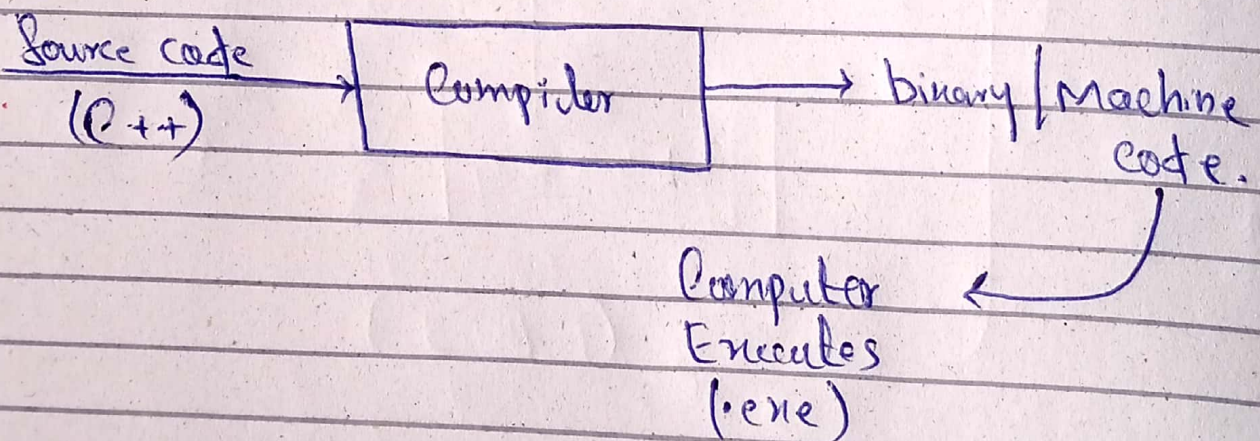 Source code
(C++)
Compiler
binary / Machine
code.
Computer
Executes
(.exe)